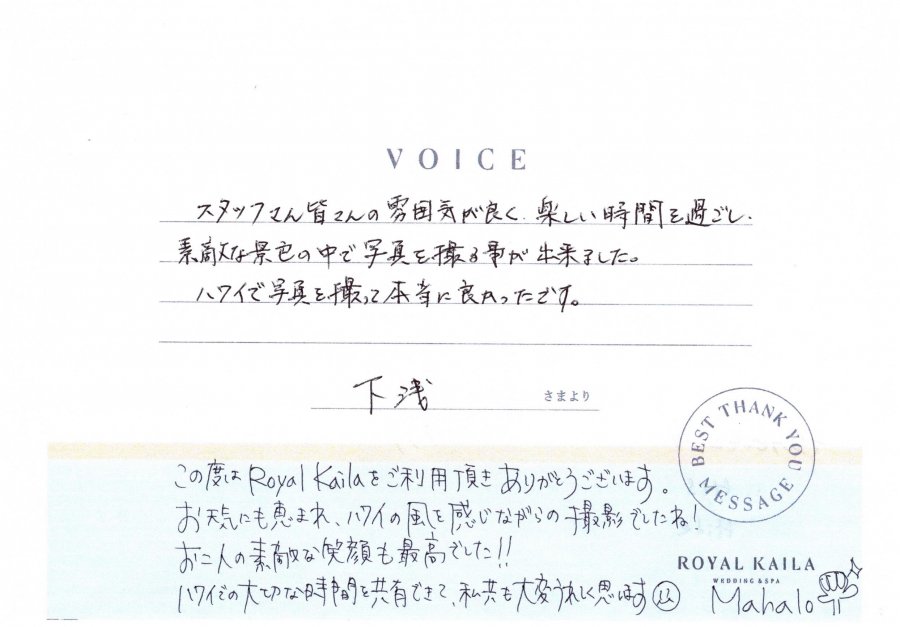 VOICE
スタッフさん皆さんの雰囲気が良く、楽しい時間を過ごし、
素敵な景色の中で写真を撮る事が出来ました。
ハワイで写真を撮って本当に良かったです。
下浅 さまより
BEST THANK YOU MESSAGE
この度は Royal Kailaをご利用頂き ありがとうございます。
お天気にも恵まれ、ハワイの風を感じながらの撮影でしたね!
お二人の素敵な笑顔も最高でした!!
ハワイでの大切な時間を共有できて、私共も大変うれしく思います
ROYAL KAILA
WEDDING & SPA
Mahalo